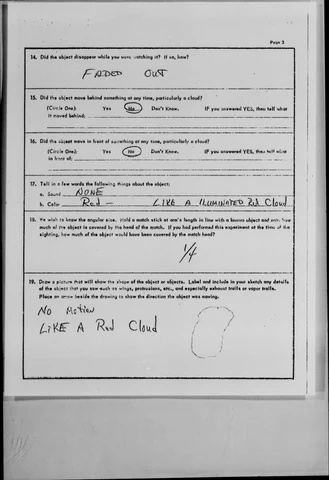 Page 3
14. Did the object disappear while you were watching it? If so, how?
FADED OUT
15. Did the object move behind something at any time, particularly a cloud?
(Circle One): Yes No Don't Know. IF you answered YES, then tell what
it moved behind:
16. Did the object move in front of something at any time, particularly a cloud?
(Circle One): Yes No Don't Know. IF you answered YES, then tell what
in front of:
17. Tell in a few words the following things about the object:
a. Sound NONE
b. Color Red - LIKE A ILUMINATED Red Cloud
18. We wish to know the angular size. Hold a match stick at arm's length in line with a known object and note how
much of the object is covered by the head of the match. If you had performed this experiment at the time of the
sighting, how much of the object would have been covered by the match head?
1/4
19. Draw a picture that will show the shape of the object or objects. Label and include in your sketch any details
of the object that you saw such as wings, protrusions, etc., and especially exhaust trails or vapor trails.
Place an arrow beside the drawing to show the direction the object was moving.
No Motion
LIKE A Red Cloud